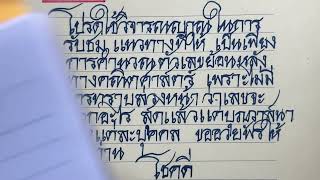 โปรดใช้วิจารณญาณในการ
รับชม แนวทางที่ให้ เป็นเพียง
การคำนวณตัวเลขย้อนหลัง
ทางคณิตศาสตร์ เพราะไม่มี
การทราบล่วงหน้า ว่าเลขจะ
อะไร สุดแล้วแต่บุญวาสนา
แต่ละบุคคล ขออวยพรให้
ท่าน
โชคดี